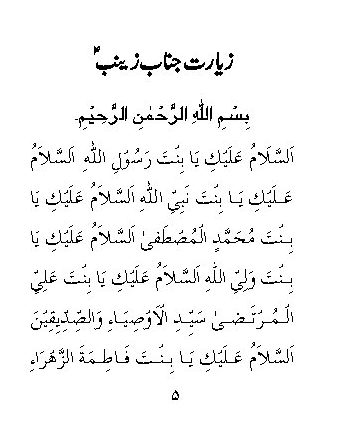 زیارت جناب زینبؑ
بِسْمِ اللهِ الرَّحْمٰنِ الرَّحِيْمِ۔
اَلسَّلَامُ عَلَيْكِ يَا بِنْتَ رَسُوْلِ اللهِ اَلسَّلَامُ
عَلَيْكِ يَا بِنْتَ نَبِيِّ اللهِ السَّلَامُ عَلَيْكِ يَا
بِنْتَ مُحَمَّدٍ الْمُصْطَفىٰ السَّلَامُ عَلَيْكِ يَا
بِنْتَ وَلِيِّ اللهِ السَّلَامُ عَلَيْكِ يَا بِنْتَ عَلِيِّ
الْمُرْتَضىٰ سَيِّدِ الْاَوْصِيَاءِ وَالصِّدِّيْقِيْنَ
السَّلَامُ عَلَيْكِ يَا بِنْتَ فَاطِمَةَ الزَّهْرَاءِ
۵